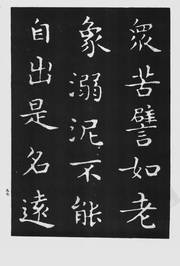 眾苦譬如老
象溺泥不能
自出是名遠